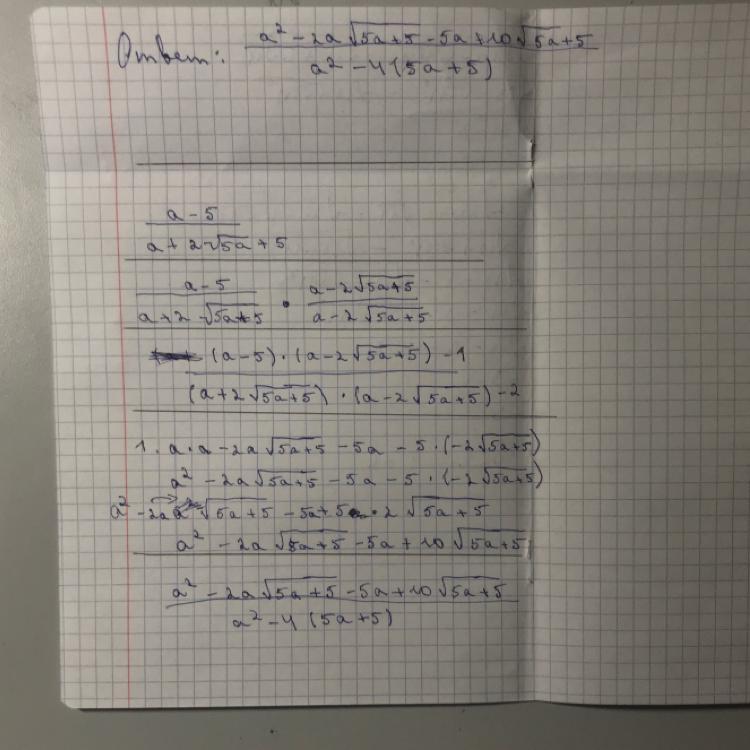 Ответ: (a² - 2a√(5a+5) - 5a + 10√(5a+5)) / (a² - 4(5a+5))
(a - 5) / (a + 2√5a + 5)
(a - 5) / (a + 2√(5a+5)) · (a - 2√(5a+5)) / (a - 2√(5a+5))
(a-5)·(a-2√(5a+5)) - 1
(a+2√(5a+5))·(a-2√(5a+5)) - 2
1. a·a - 2a√(5a+5) - 5a - 5·(-2√(5a+5))
a² - 2a√(5a+5) - 5a - 5·(-2√(5a+5))
a² - 2a√(5a+5) - 5a + 5·2√(5a+5)
a² - 2a√(5a+5) - 5a + 10√(5a+5)
(a² - 2a√(5a+5) - 5a + 10√(5a+5)) / (a² - 4(5a+5))